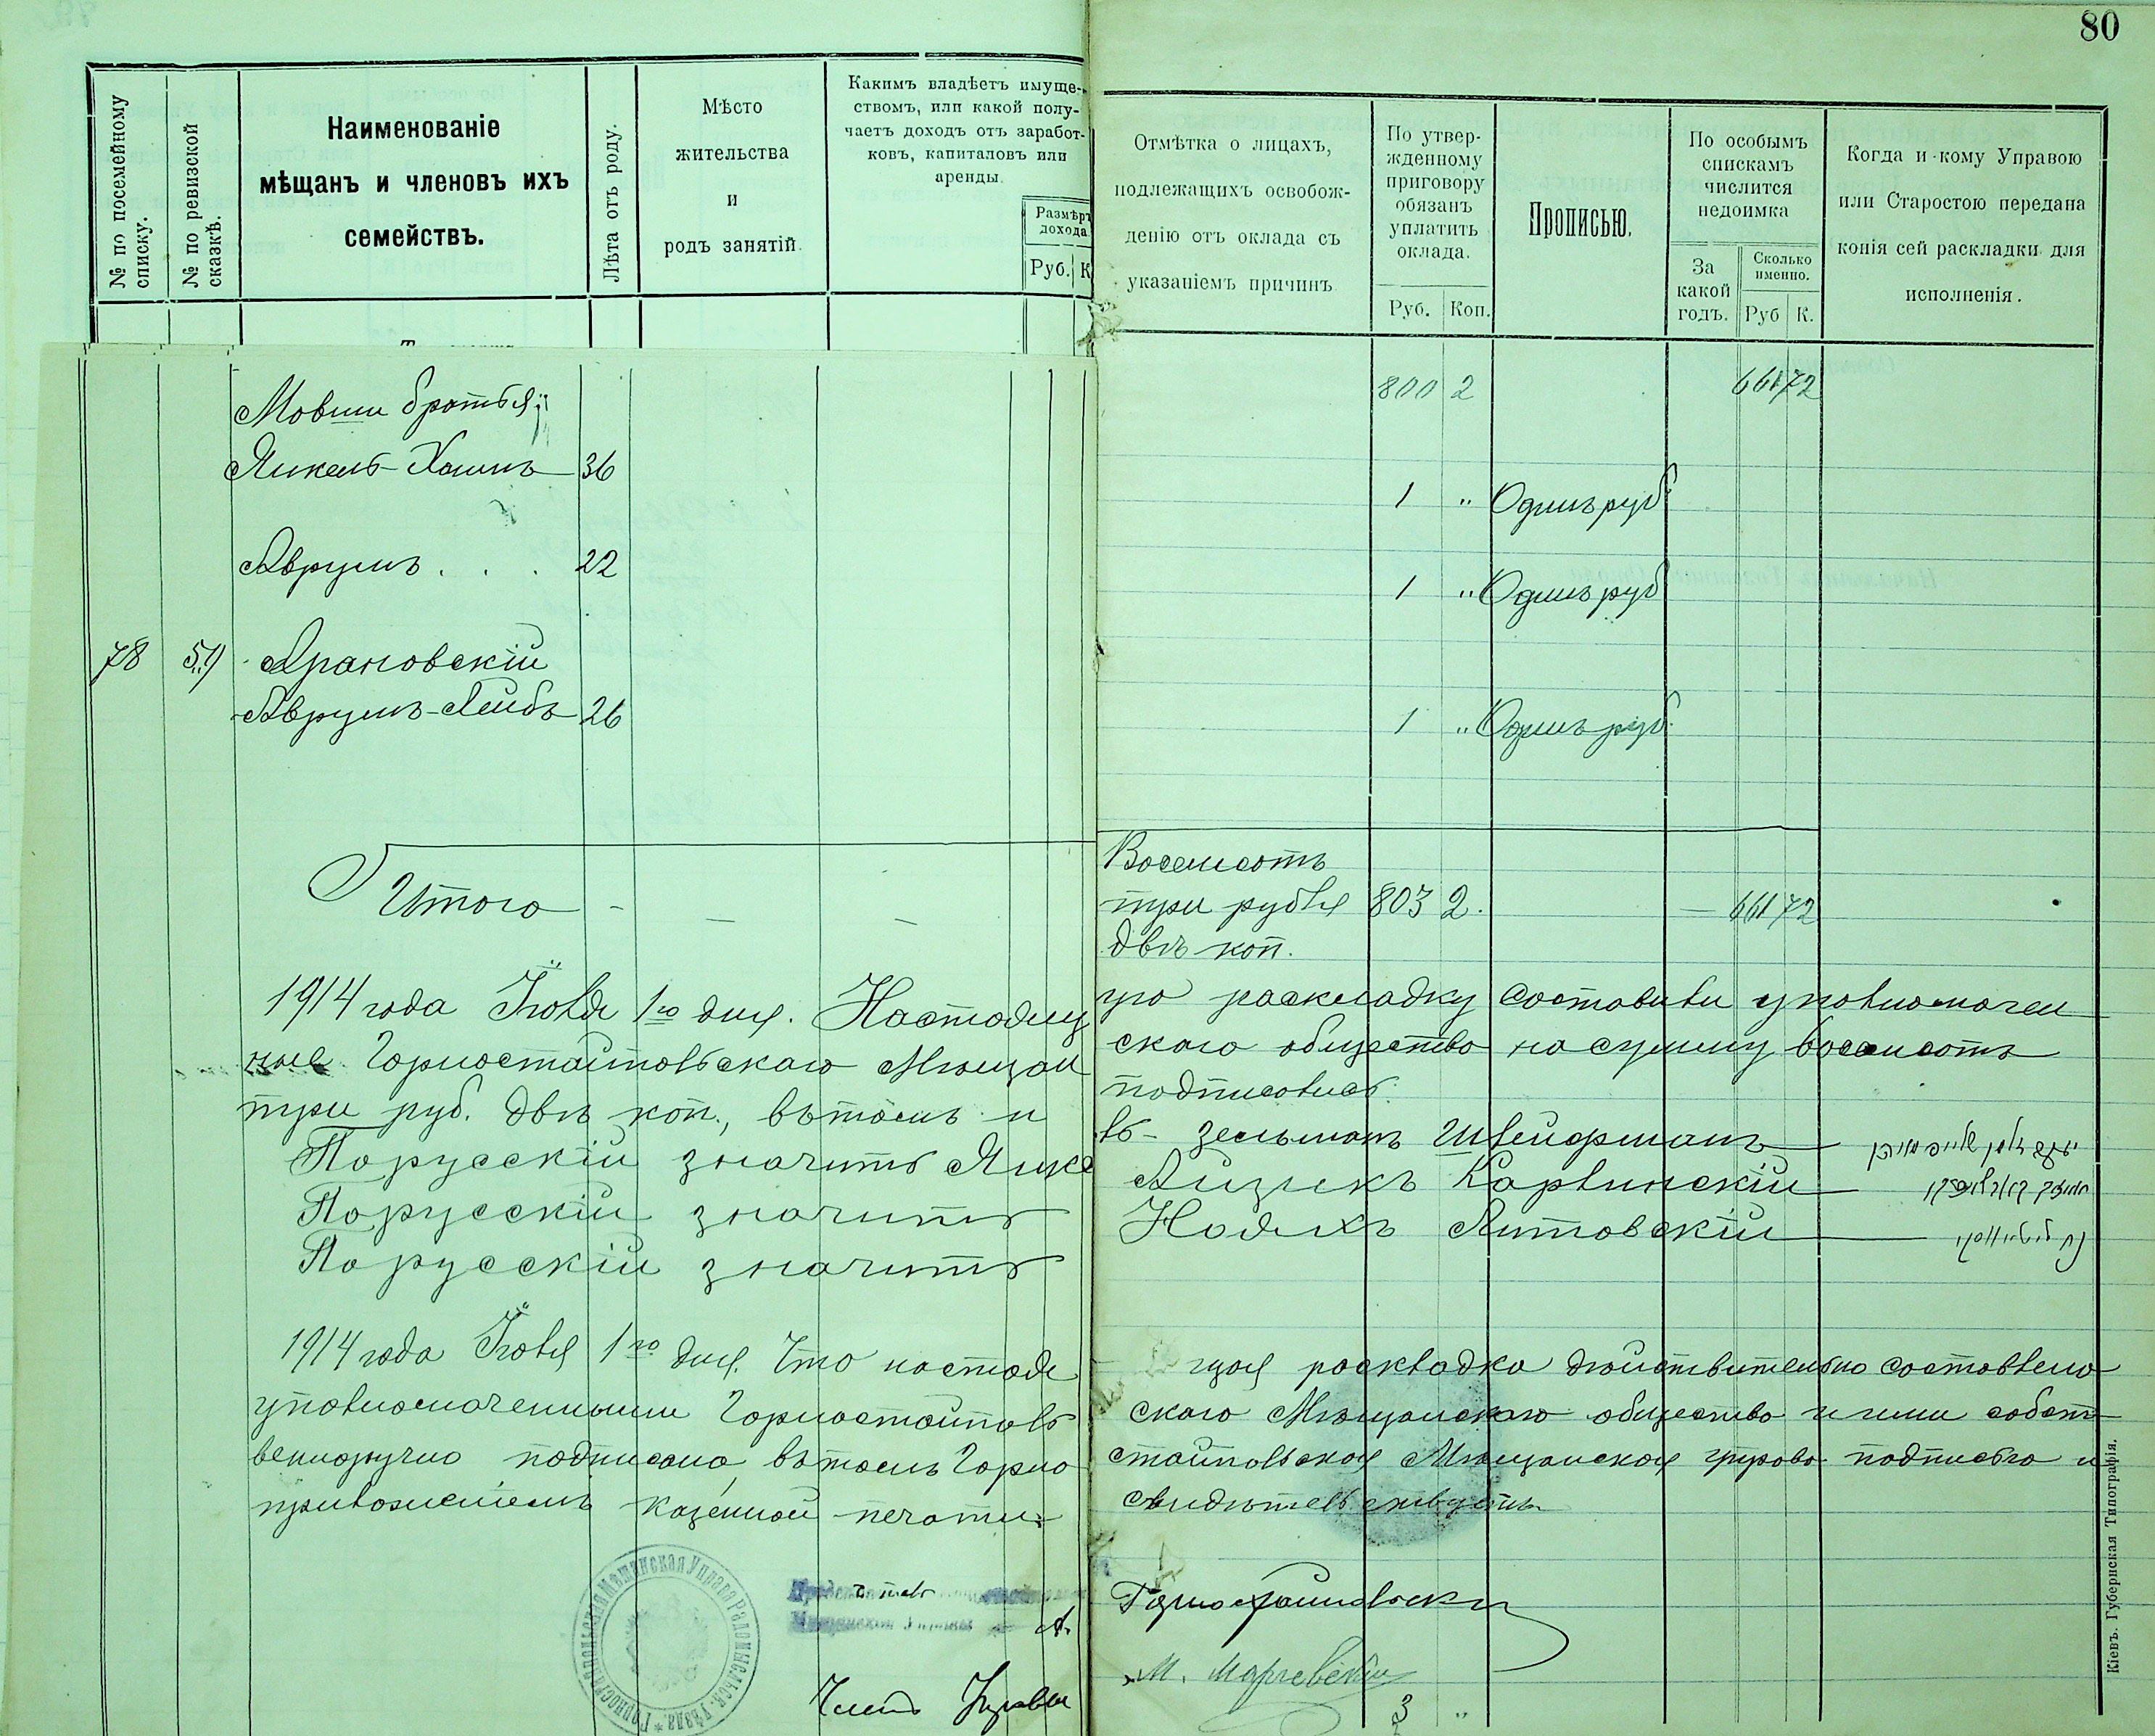 80
№ по посемейному списку.
№ по ревизской сказкѣ.
Наименованіе
мѣщанъ и членовъ ихъ
семействъ.
Лѣта отъ роду.
Мѣсто
жительства
и
родъ занятій.
Какимъ владѣетъ имуще-
ствомъ, или какой полу-
чаетъ доходъ отъ заработ-
ковъ, капиталовъ или
аренды.
Размѣръ
дохода
Руб. К
Отмѣтка о лицахъ,
подлежащихъ освобож-
денію отъ оклада съ
указаніемъ причинъ
По утвер-
жденному
приговору
обязанъ
уплатить
оклада.
Руб. Коп.
Прописью.
По особымъ
спискамъ
числится
недоимка
За
какой
годъ.
Сколько
именно.
Руб К.
Когда и кому Управою
или Старостою передана
копія сей раскладки для
исполненія.
800 2 661 72
Мовши братья:
Янкель-Хаимъ 36 1 " Одинъ руб
Аврумъ . . . 22 1 " Одинъ руб
78 59 Арановскій
Аврумъ-Лейбъ 26 1 " Одинъ руб.
Итого - - - Восемсотъ
три рубля 803 2. - 661 72
двѣ коп.
1914 года Іюля 1го дня. Настоящую раскладку составили уполномочен
ные Горностайпольскаго Мѣщанскаго общества на сумму восемсотъ
три руб. двѣ коп., въ томъ и подписались:
Порусскій значить Янкель-Зельманъ Швейфманъ
Порусскій значить Айзикъ Карлинскій
Порусскій значить Нояхъ Литовскій
1914 года Іюля 1го дня. Что настоящая раскладка дѣйствительно составлена
уполномоченными Горностайпольскаго Мѣщанскаго общества и ими собст
венноручно подписана, въ томъ Горностайпольская Мѣщанская управа подписью и
приложеніемъ казенной печати свидѣтельствуетъ.
Членъ Управы
3 "
Кіевъ. Губернская Типографія.